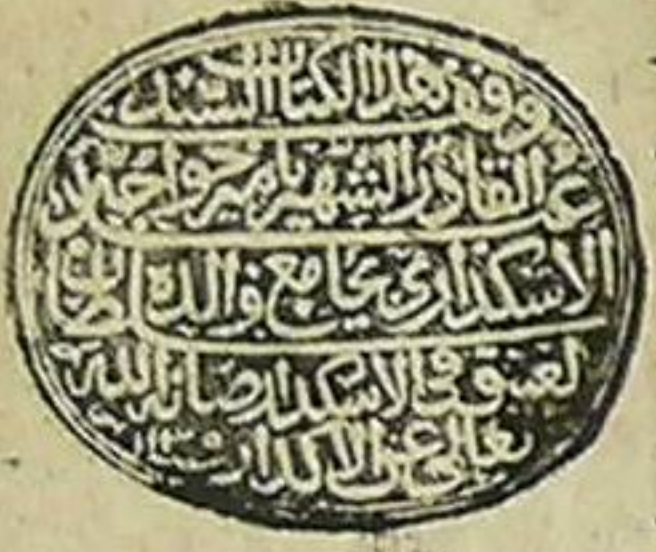 قد وقف هذا الكتاب السيد
عبد القادر الشهير بامير خواجه
الاسكداري بجامع والده سلطان
لعتيق في الاسكدار صانه الله
تعالى عن الاكدار سنه